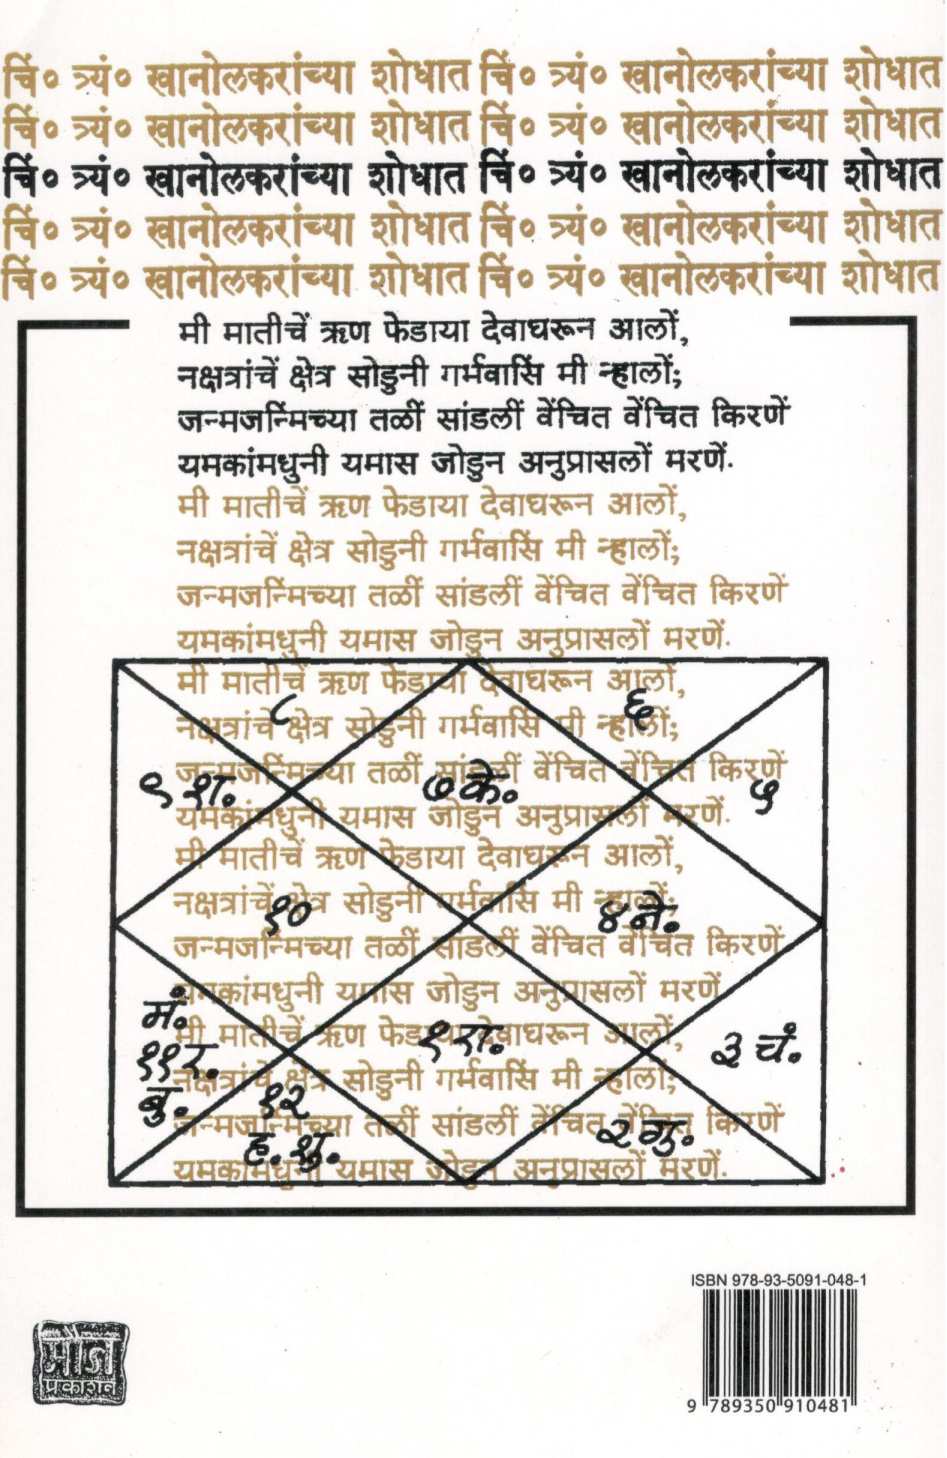 चिं० त्र्यं० खानोलकरांच्या शोधात चिं० त्र्यं० खानोलकरांच्या शोधात
चिं० त्र्यं० खानोलकरांच्या शोधात चिं० त्र्यं० खानोलकरांच्या शोधात
चिं० त्र्यं० खानोलकरांच्या शोधात चिं० त्र्यं० खानोलकरांच्या शोधात
चिं० त्र्यं० खानोलकरांच्या शोधात चिं० त्र्यं० खानोलकरांच्या शोधात
चिं० त्र्यं० खानोलकरांच्या शोधात चिं० त्र्यं० खानोलकरांच्या शोधात
मी मातीचें ऋण फेडाया देवाघरून आलों,
नक्षत्रांचें क्षेत्र सोडुनी गर्भवासिं मी न्हालों;
जन्मजन्मिंच्या तळीं सांडलीं वेंचित वेंचित किरणें
यमकांमधुनी यमास जोडुन अनुप्रासलों मरणें.
मी मातीचें ऋण फेडाया देवाघरून आलों,
नक्षत्रांचें क्षेत्र सोडुनी गर्भवासिं मी न्हालों;
जन्मजन्मिंच्या तळीं सांडलीं वेंचित वेंचित किरणें
यमकांमधुनी यमास जोडुन अनुप्रासलों मरणें.
मी मातीचें ऋण फेडाया देवाघरून आलों,
८ ६
नक्षत्रांचें क्षेत्र सोडुनी गर्भवासिं मी न्हालों;
जन्मजन्मिंच्या तळीं सांडलीं वेंचित वेंचित किरणें
९ श. ७ के. ५
यमकांमधुनी यमास जोडुन अनुप्रासलों मरणें.
मी मातीचें ऋण फेडाया देवाघरून आलों,
नक्षत्रांचें क्षेत्र सोडुनी गर्भवासिं मी न्हालों;
१० ४ ने.
जन्मजन्मिंच्या तळीं सांडलीं वेंचित वेंचित किरणें
यमकांमधुनी यमास जोडुन अनुप्रासलों मरणें
मं.
मी मातीचें ऋण फेडाया देवाघरून आलों,
१ रा. ३ चं.
११ र.
नक्षत्रांचें क्षेत्र सोडुनी गर्भवासिं मी न्हालों;
बु. १२
जन्मजन्मिंच्या तळीं सांडलीं वेंचित वेंचित किरणें
ह. शु. २ गु.
यमकांमधुनी यमास जोडुन अनुप्रासलों मरणें.
ISBN 978-93-5091-048-1
मौज
प्रकाशन
9 789350 910481